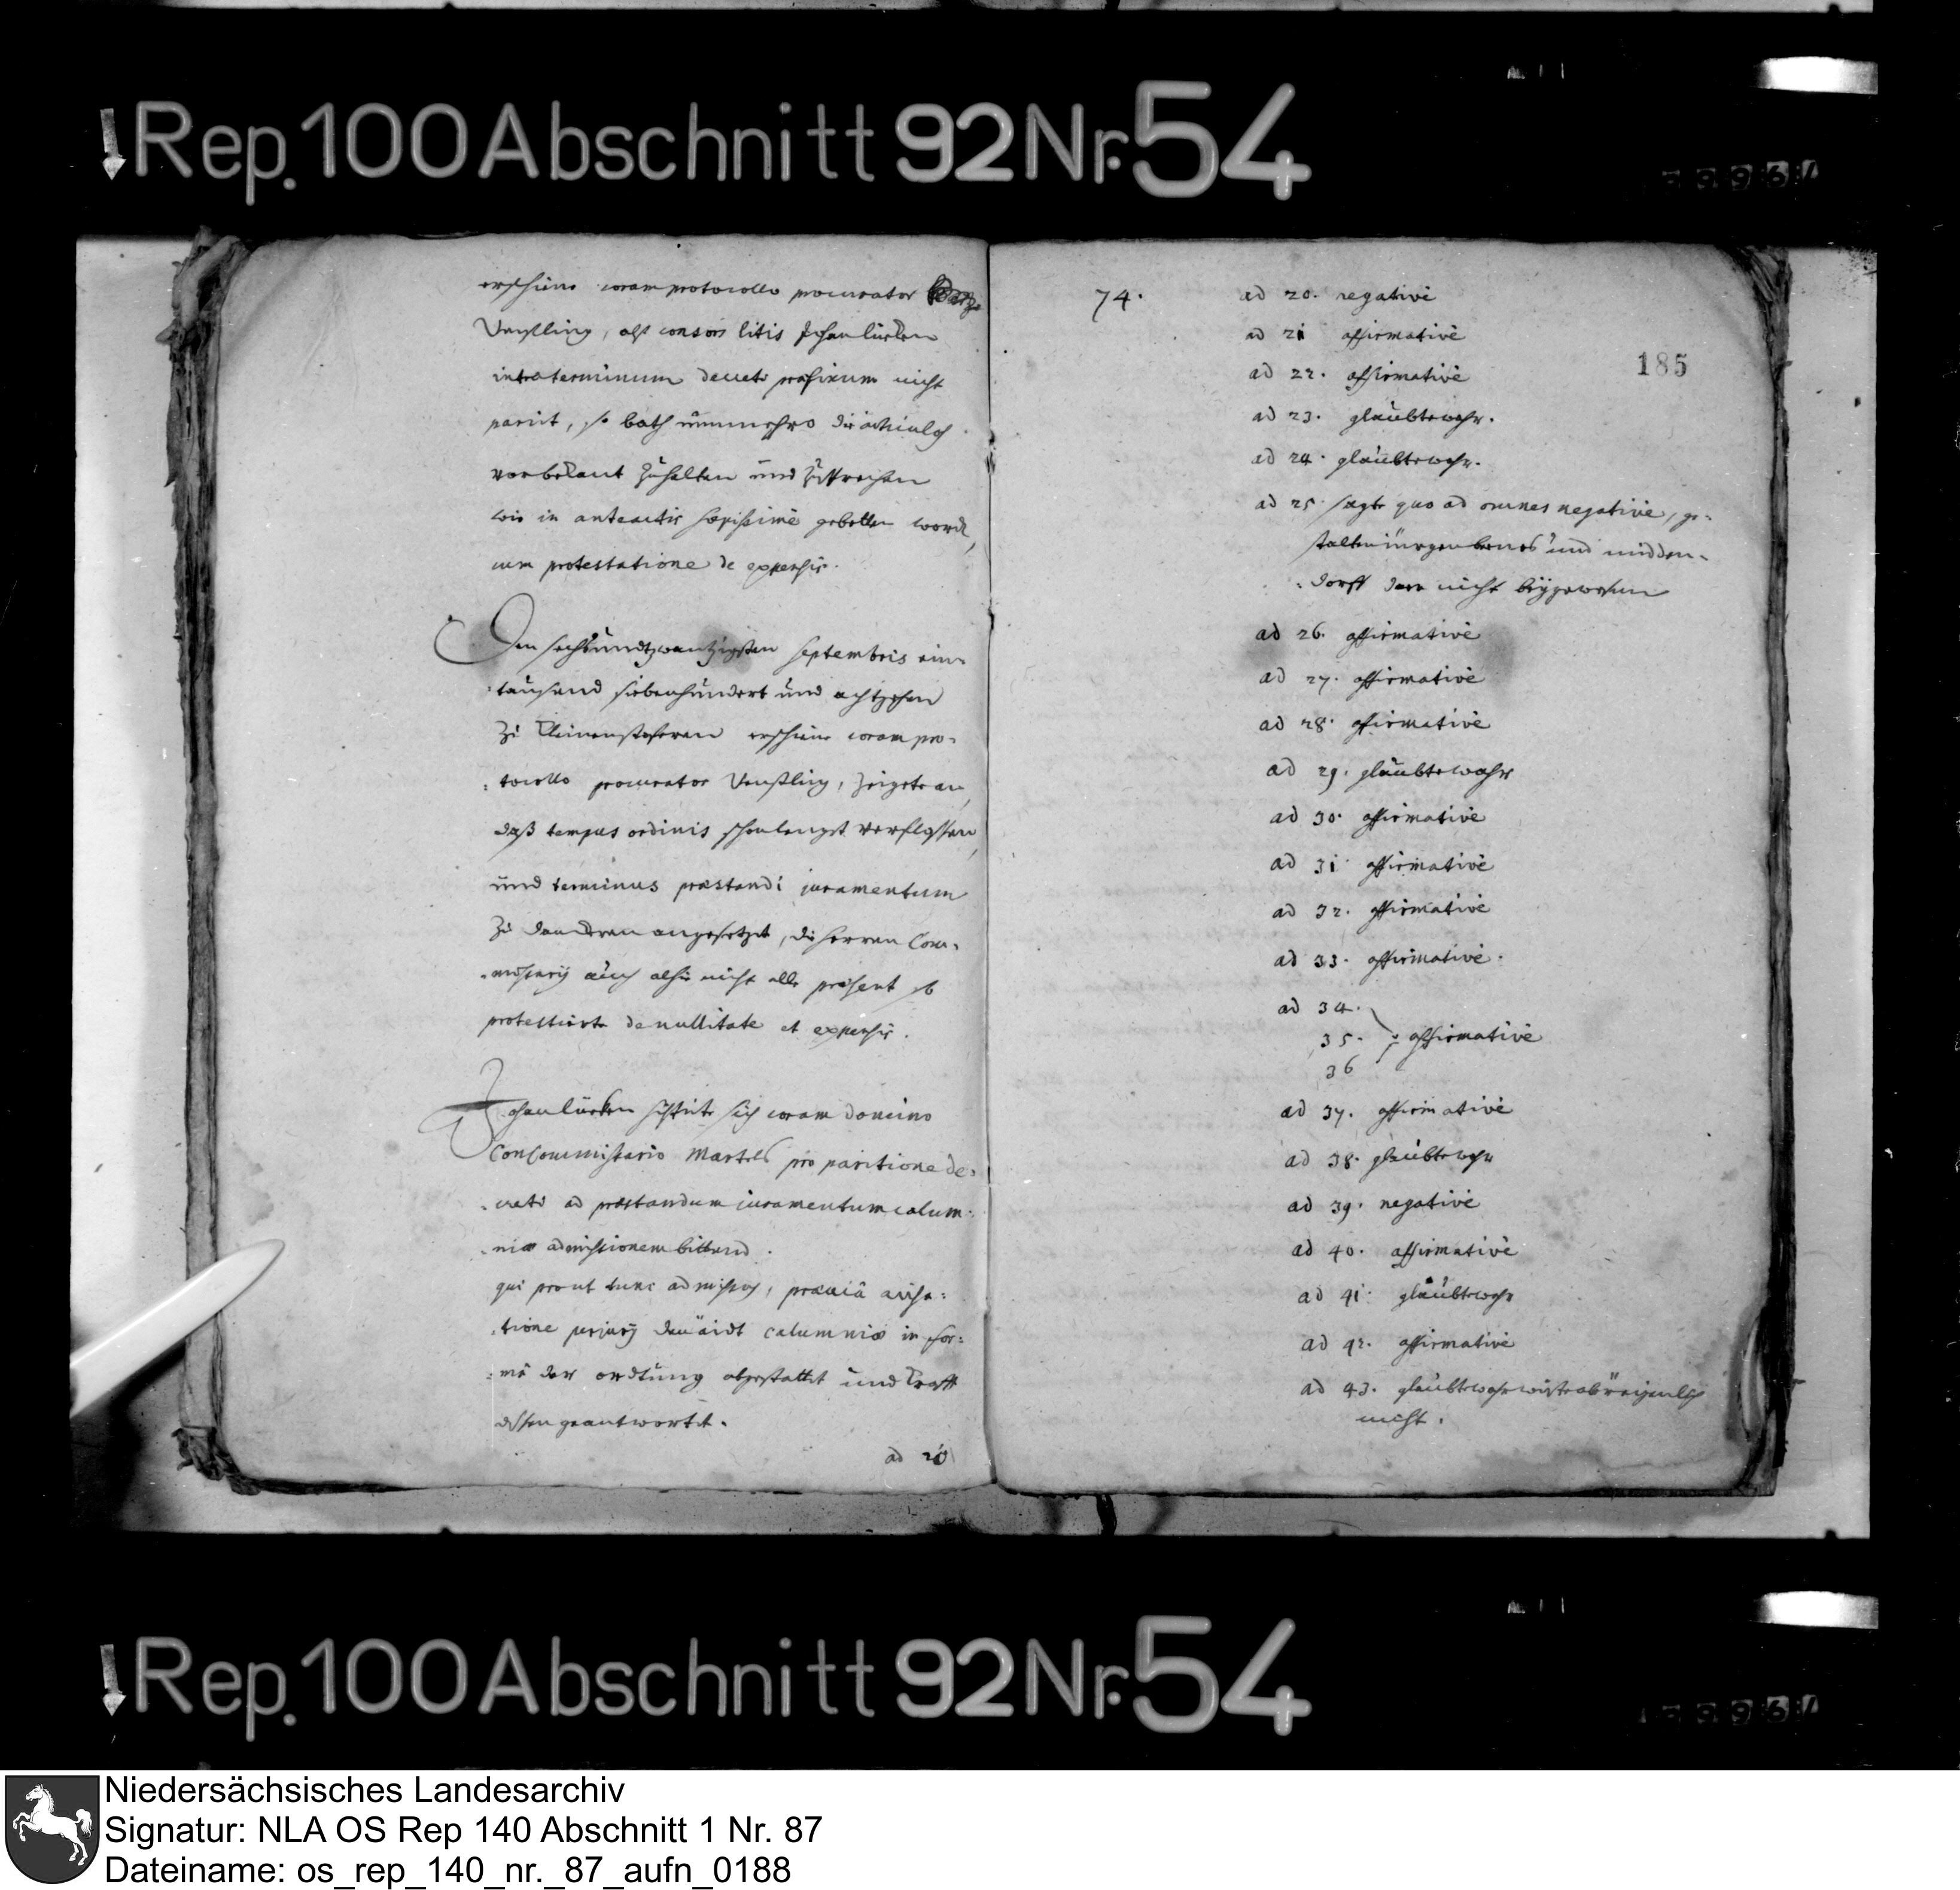 Rep. 100 Abschnitt 92 Nr. 54
erschiene coram protocollo procurator
Venßling, alß consors litis Johan lürken
intra terminum decreti præfixum nicht
parirt, so bath nunmehro die articulos
vor bekant zuhalten und zusprechen
wie in anteactis sæpissime gebetten word,
cum protestatione de expensis.
Den sechsundtzwantzigsten septembris ein-
tausend siebenhundert und achtzehen
zu erschiene coram pro-
tocollo procurator Venßling, zeigete an,
daß tempus ordinis schonlengst verflossen,
und terminus præstandi juramentum
zu angesetzet, die herren Com-
missarij auch alhie nicht alle præsent
protestirte de nullitate et expensis.
Johan lürken sistirte sich coram domino
Concommissario Martels pro paritione de-
creti ad præstandum iuramentum calum-
niæ admissionem bittend.
qui prout tunc admissus, præviâ avisa-
tione perjurij den äidt calumniæ in for-
mâ der ordtung abgestattet und krafft
dessen geantwortet.
ad 20
74.
185
ad 20. negativè
ad 21 affirmativè
ad 22. affirmativè
ad 23. glaubte wahr.
ad 24. glaubte wahr.
ad 25 sagte quo ad omnes negativè, ge-
stalten und midden-
dorff dan nicht beÿgewesen
ad 26. affirmativè
ad 27. affirmativè
ad 28. affirmativè
ad 29. glaubte wahr
ad 30. affirmativè
ad 31 affirmativè
ad 32. affirmativè
ad 33. affirmativè.
ad 34.
35. affirmativè
36
ad 37. affirmativè
ad 38. glaubte wahr
ad 39. negativè
ad 40. affirmativè
ad 41 glaubte wahr
ad 42. affirmativè
ad 43. glaubte wahr wiste aber eigenlich
nicht.
Rep. 100 Abschnitt 92 Nr. 54
Niedersächsisches Landesarchiv
Signatur: NLA OS Rep 140 Abschnitt 1 Nr. 87
Dateiname: os_rep_140_nr._87_aufn_0188